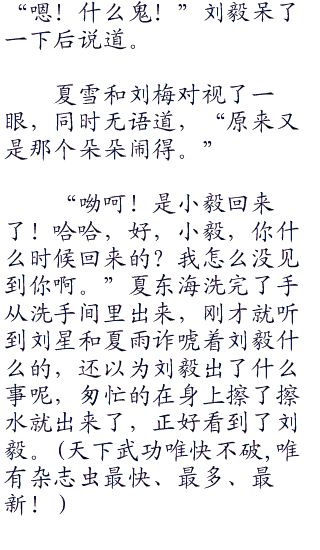 “嗯！什么鬼！”刘毅呆了
一下后说道。
夏雪和刘梅对视了一
眼，同时无语道，“原来又
是那个朵朵闹得。”
“呦呵！是小毅回来
了！哈哈，好，小毅，你什
么时候回来的？我怎么没见
到你啊。”夏东海洗完了手
从洗手间里出来，刚才就听
到刘星和夏雨诈唬着刘毅什
么的，还以为刘毅出了什么
事呢，匆忙的在身上擦了擦
水就出来了，正好看到了刘
毅。(天下武功唯快不破,唯
有杂志虫最快、最多、最
新！)